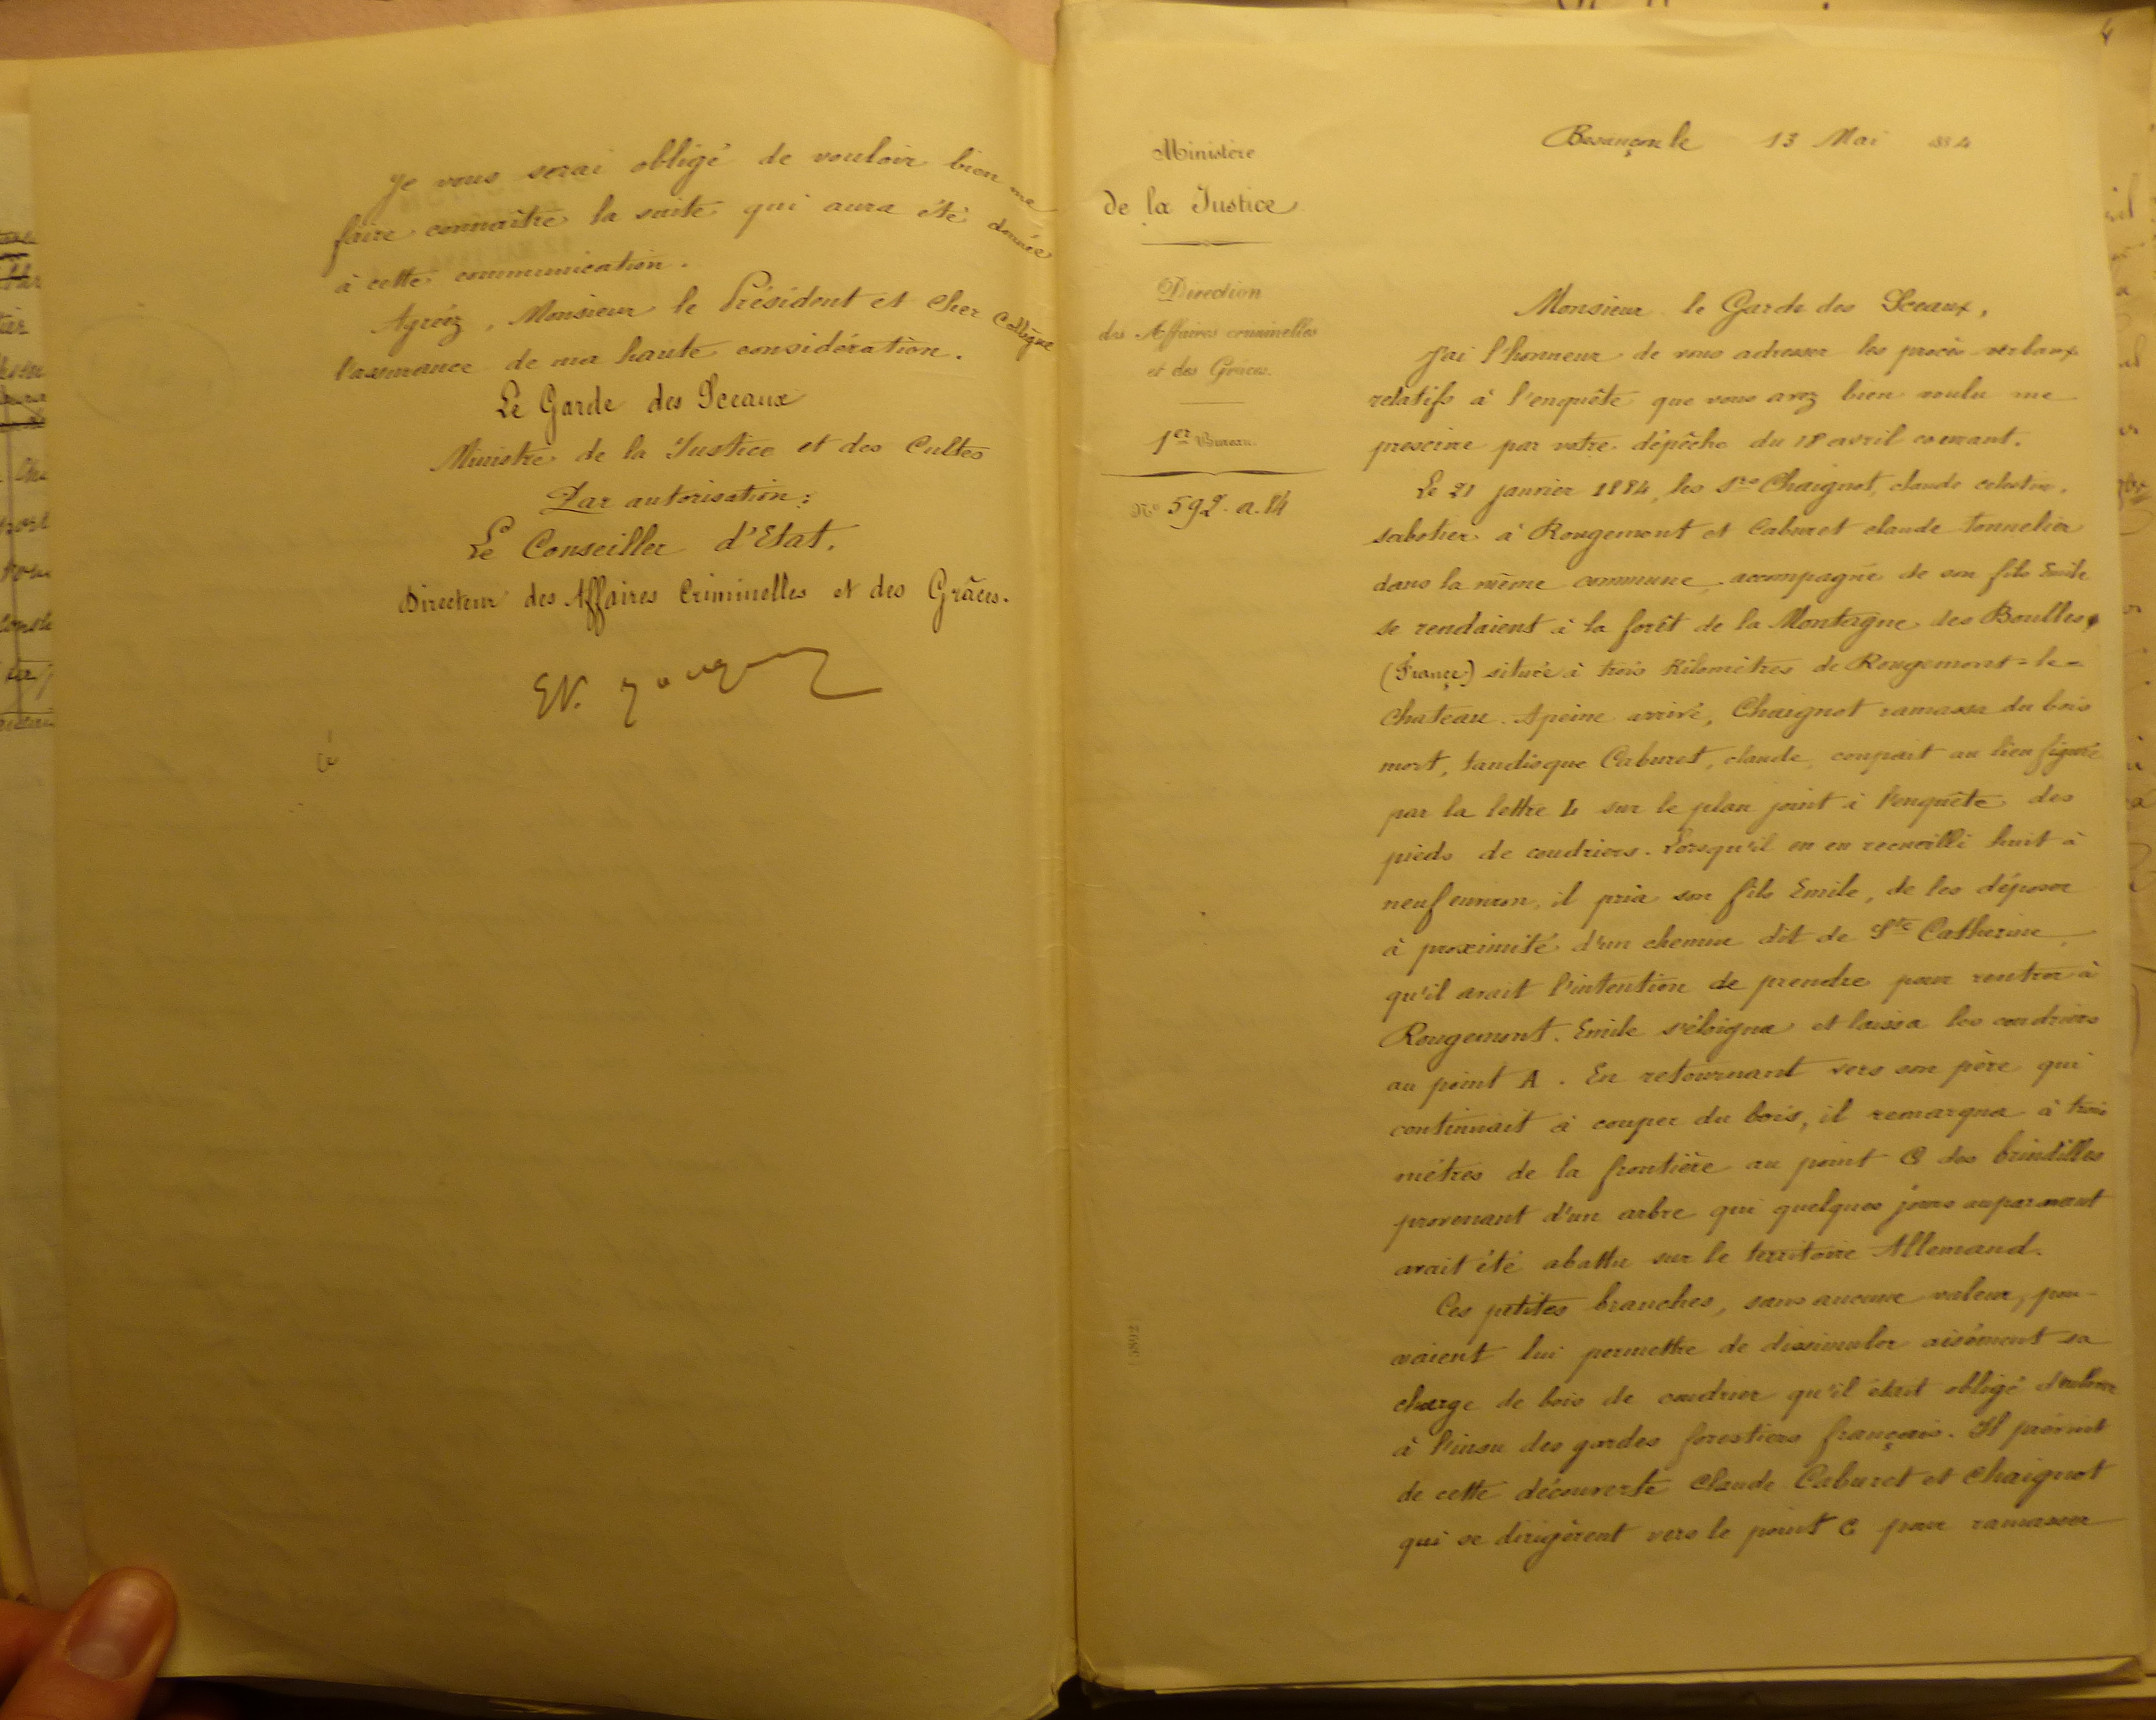 Je vous serai obligé de vouloir bien me
faire connaître la suite qui aura été donnée
à cette communication.
Agréez, Monsieur le Président et Cher Collègue
l'assurance de ma haute considération.
Le Garde des Sceaux
Ministre de la Justice et des Cultes
Par autorisation:
Le Conseiller d'Etat.
Directeur des Affaires Criminelles et des Grâces.
4
Ministère
de la Justice
Direction
des Affaires criminelles
et des Grâces.
1er Bureau.
No 592. a. 84
Besançon le 13 Mai 1884
Monsieur le Garde des Sceaux,
J'ai l'honneur de vous adresser les procès verbaux
relatifs à l'enquête que vous avez bien voulu me
prescrire par votre dépêche du 18 avril courant.
Le 21 janvier 1884, les Srs Chaignot, claude celestin,
sabotier à Rougemont et Caburet claude tonnelier
dans la même commune, accompagné de son fils Emile
se rendaient à la forêt de la Montagne des Boulles,
(France) située à trois Kilomètres de Rougemont-le-
Chateau. A peine arrivé, Chaignot ramassa du bois
mort, tandis que Caburet, claude, coupait au lieu figuré
par la lettre L sur le plan joint à l'enquête des
pieds de coudriers. Lorsqu'il en eu recueilli huit à
neuf environ, il pria son fils Emile, de les déposer
à proximité d'un chemin dit de Ste Catherine,
qu'il avait l'intention de prendre pour rentrer à
Rougemont. Emile s'éloigna et laissa les coudriers
au point A. En retournant vers son père qui
continuait à couper du bois, il remarqua à trois
mètres de la frontière au point C des brindilles
provenant d'un arbre qui quelques jours auparavant
avait été abattu sur le territoire Allemand.
Ces petites branches, sans aucune valeur, pou-
vaient lui permettre de dissimuler aisément sa
charge de bois de coudrier qu'il était obligé d'enlever
à l'insu des gardes forestiers français. Il prévint
de cette découverte Claude Caburet et Chaignot
qui se dirigèrent vers le point C pour ramasser